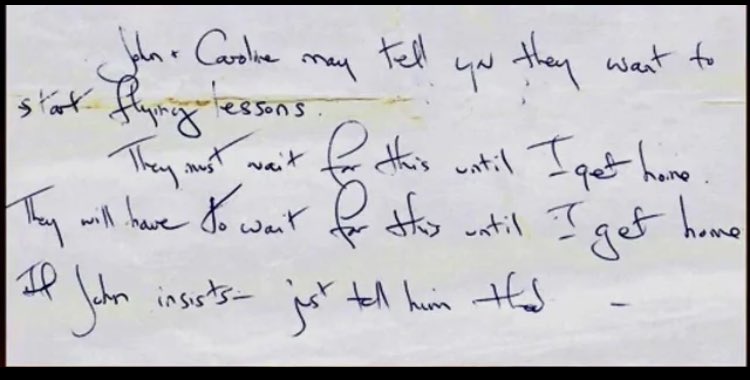 John + Caroline may tell you they want to
start flying lessons.
They must wait for this until I get home.
They will have to wait for this until I get home
If John insists – just tell him that –